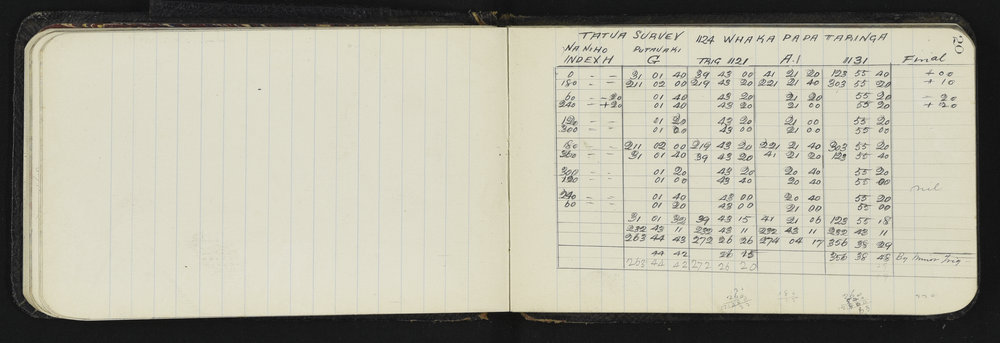 20
TATUA SURVEY 1124 WHAKA PAPA TARINGA
NANIHO PUTAUAKI
INDEX H G TRIG 1121 A.1 1131 Final
0 – – 31 01 40 39 43 00 41 21 20 123 55 40 + 00
180 – – 211 02 00 219 43 20 221 21 40 303 55 20 + 10
60 – – 20 01 40 43 20 21 20 55 20 – 20
240 – + 20 01 40 43 20 21 00 55 20 + 20
120 – – 01 20 43 20 21 00 55 20
300 – – 01 00 43 00 21 00 55 00
180 – – 211 02 00 219 43 20 221 21 40 303 55 20
360 – – 31 01 40 39 43 20 41 21 20 123 55 40
300 – – 01 20 43 20 20 40 55 20
120 – – 01 00 43 40 20 40 55 00
nil
240 – – 01 40 43 00 20 40 55 20
60 – – 01 20 43 00 21 00 55 00
31 01 32 39 43 15 41 21 06 123 55 18
232 43 11 232 43 11 232 43 11 232 43 11
263 44 43 272 26 26 274 04 17 356 38 29
44 42 26 15 356 38 48 By Minor Trig
263 44 42 272 26 20